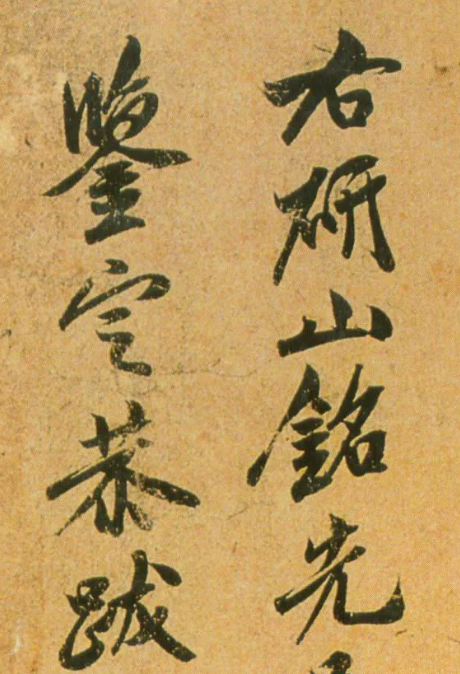 右研山銘先
鑒定恭跋